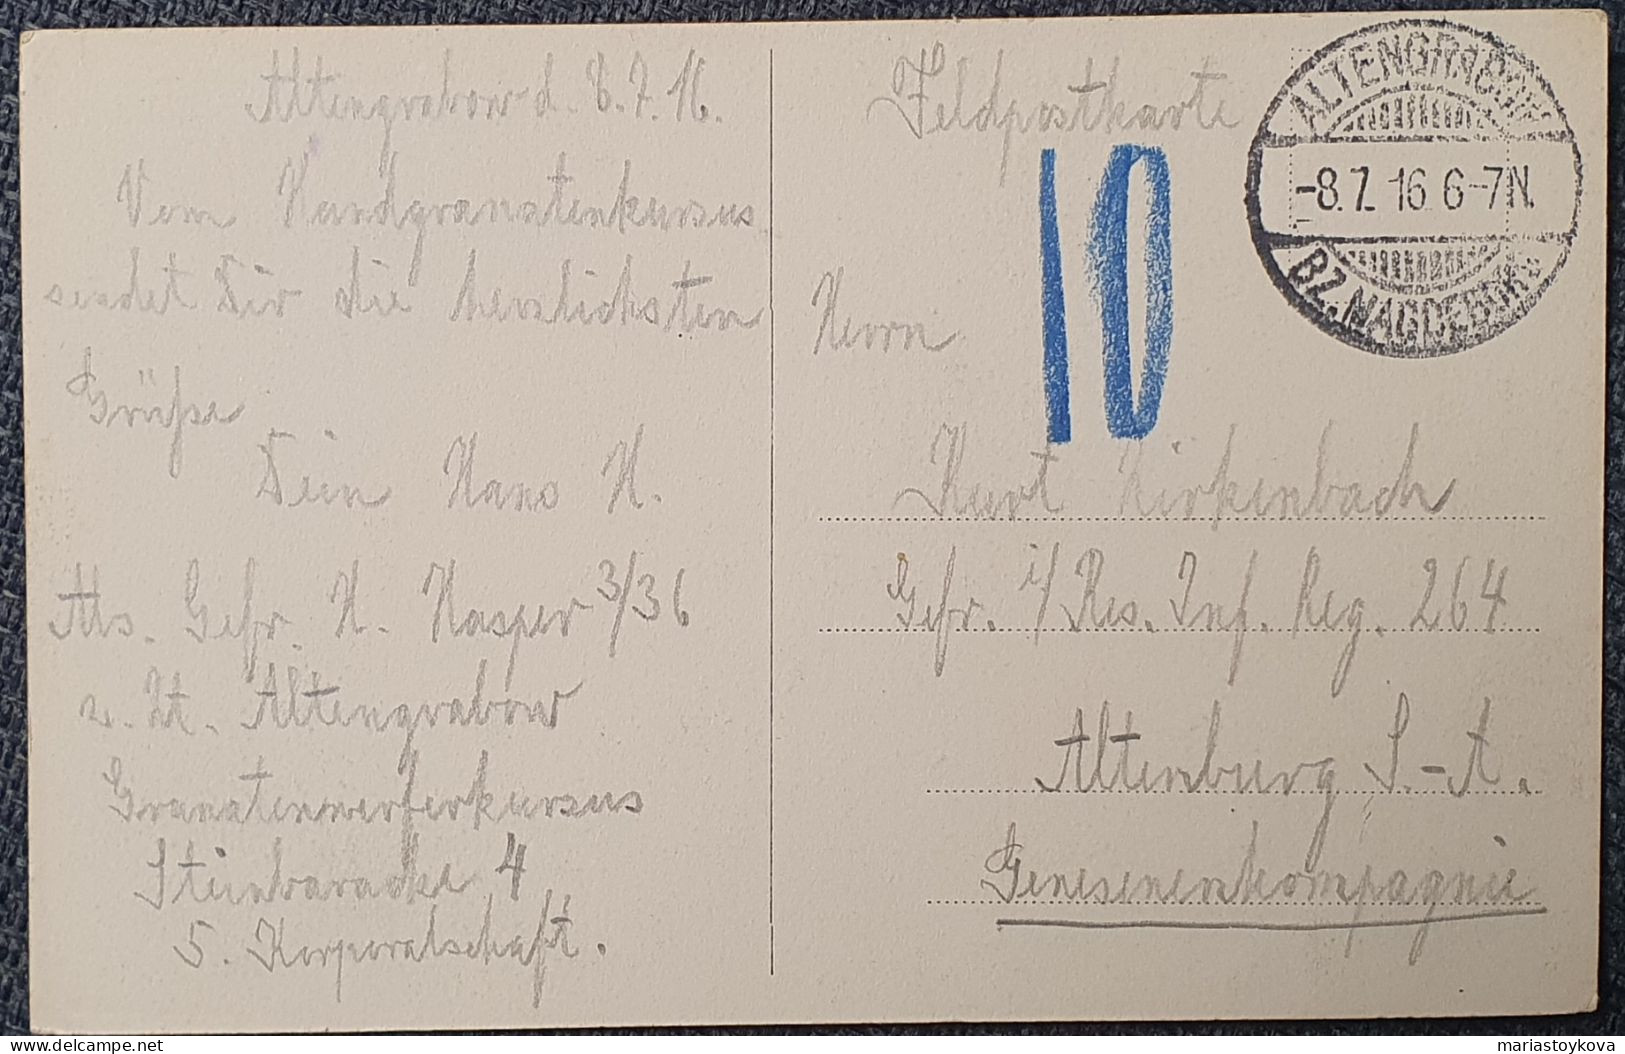 Altengrabow d. 8.7.16.
Vom Handgranatenkursus
sendet Dir die herzlichsten
Grüße
Dein Hans K.
Abs. Gefr. H. Kasper 3/36
z. Zt. Altengrabow
Granatenwerferkursus
Steinbaracke 4
5. Korporalschaft.
Feldpostkarte
ALTENGRABOW
-8.7.16 6-7N.
BZ. MAGDEBURG
10
Herrn
Kurt Kirkenbach
Gefr. i/ Res. Inf. Reg. 264
Altenburg S.-A.
Genesenenkompagnie
mariastoykova
delcampe.net